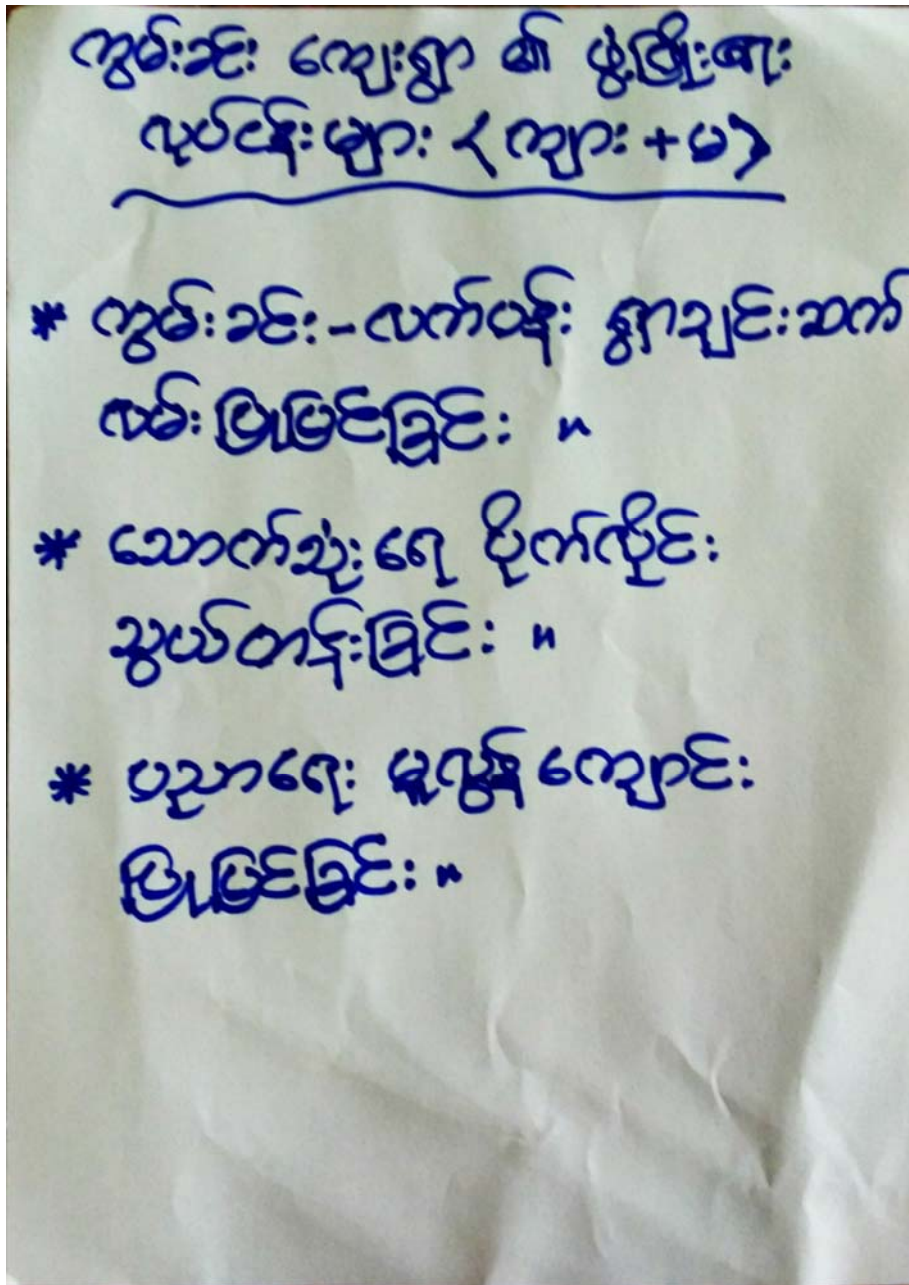 ကွမ်းခင်း ကျေးရွာ ၏ ဖွံ့ဖြိုးရေး
လုပ်ငန်းများ < ကျား + မ >
* ကွမ်းခင်း - လက်ပန်း ရွာချင်းဆက်
လမ်းပြုပြင်ခြင်း ။
* သောက်သုံးရေ ပိုက်လိုင်း
သွယ်တန်းခြင်း ။
* ပညာရေး မူလွန်ကျောင်း
ပြုပြင်ခြင်း ။